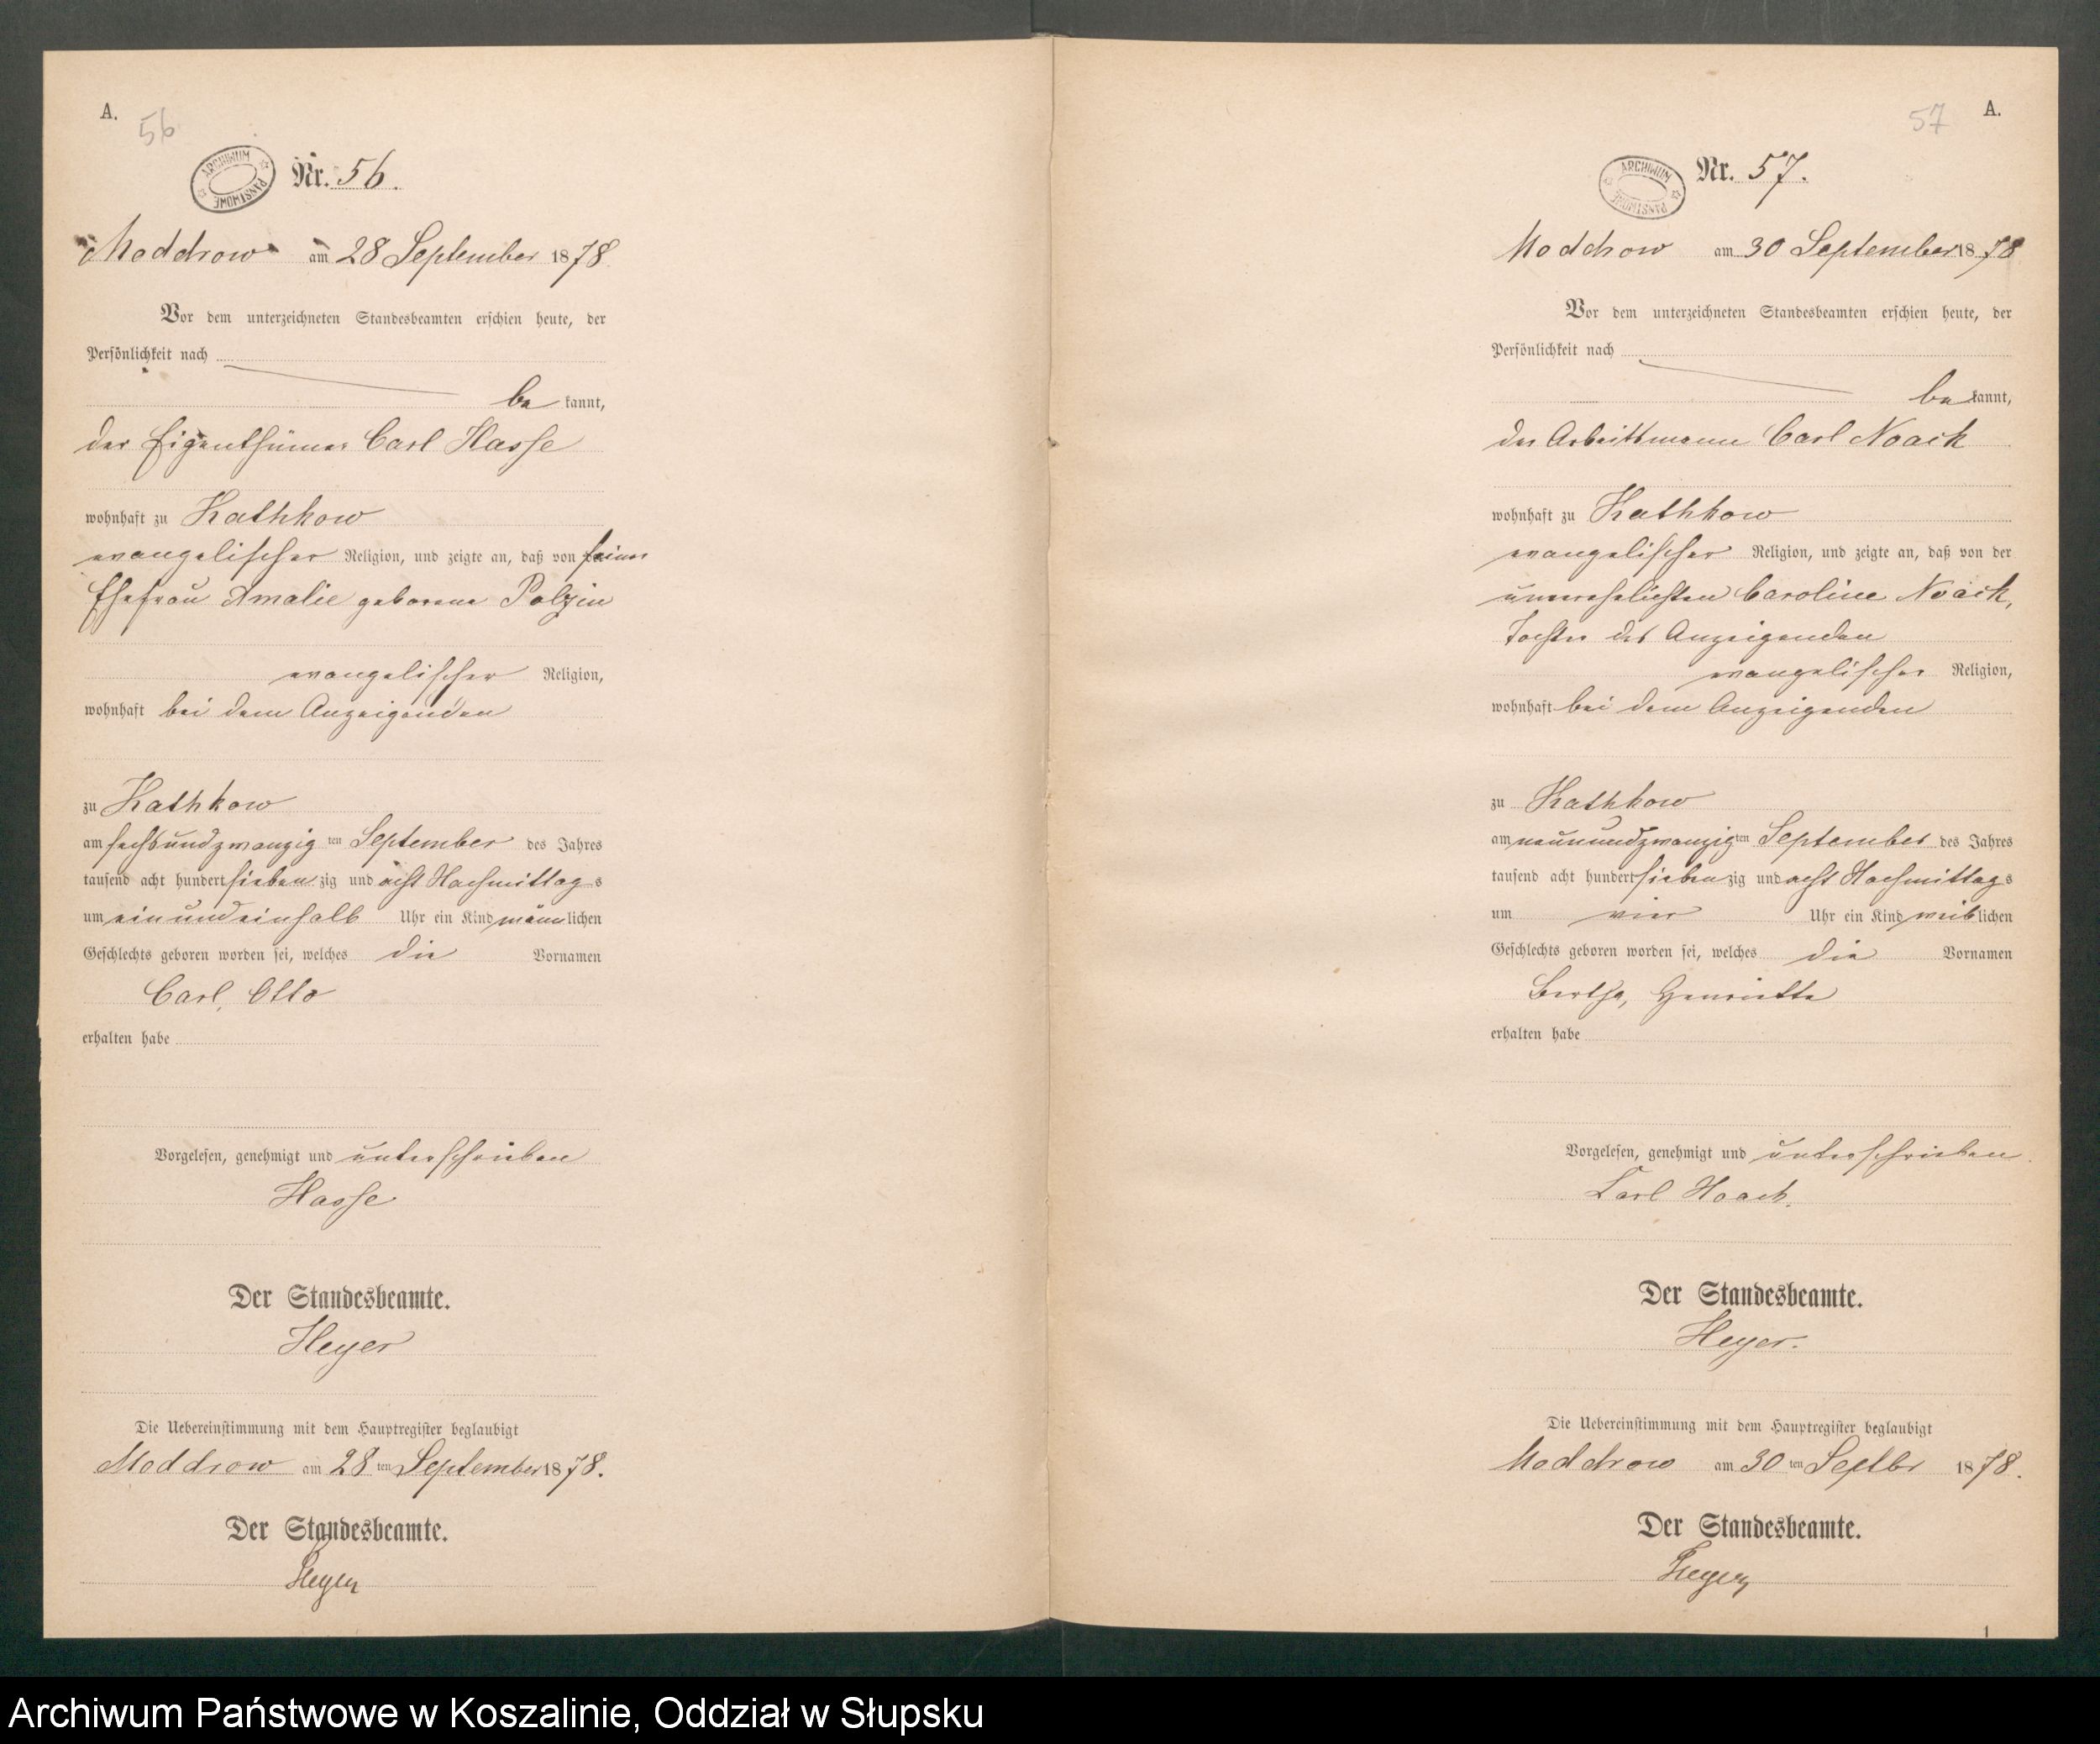 A.
56
ARCHIWUM PAŃSTWOWE
Nr. 56.
Moddrow am 28 September 1878.
Vor dem unterzeichneten Standesbeamten erschien heute, der
Persönlichkeit nach
be kannt,
der Eigenthümer Carl Hasse
wohnhaft zu Kathkow
evangelischer Religion, und zeigte an, daß von seiner
Ehefrau Amalie geborene Polzin
evangelischer Religion,
wohnhaft bei dem Anzeigenden
zu Kathkow
am sechsundzwanzig ten September des Jahres
tausend acht hundert sieben zig und acht Nachmittag s
um ein und einhalb Uhr ein Kind männ lichen
Geschlechts geboren worden sei, welches die Vornamen
Carl, Otto
erhalten habe
Vorgelesen, genehmigt und unterschrieben
Hasse
Der Standesbeamte.
Heyer
Die Uebereinstimmung mit dem Hauptregister beglaubigt
Moddrow am 28 ten September 1878.
Der Standesbeamte.
Heyer
57
A.
ARCHIWUM PAŃSTWOWE
Nr. 57.
Moddrow am 30 September 1878
Vor dem unterzeichneten Standesbeamten erschien heute, der
Persönlichkeit nach
be kannt,
der Arbeitsmann Carl Noack
wohnhaft zu Kathkow
evangelischer Religion, und zeigte an, daß von der
unverehelichten Caroline Noack,
Tochter des Anzeigenden
evangelischer Religion,
wohnhaft bei dem Anzeigenden
zu Kathkow
am neunundzwanzig ten September des Jahres
tausend acht hundert sieben zig und acht Nachmittag s
um vier Uhr ein Kind weib lichen
Geschlechts geboren worden sei, welches die Vornamen
Bertha, Henriette
erhalten habe
Vorgelesen, genehmigt und unterschrieben.
Carl Noack.
Der Standesbeamte.
Heyer.
Die Uebereinstimmung mit dem Hauptregister beglaubigt
Moddrow am 30 ten Septbr 1878.
Der Standesbeamte.
Heyer
1
Archiwum Państwowe w Koszalinie, Oddział w Słupsku